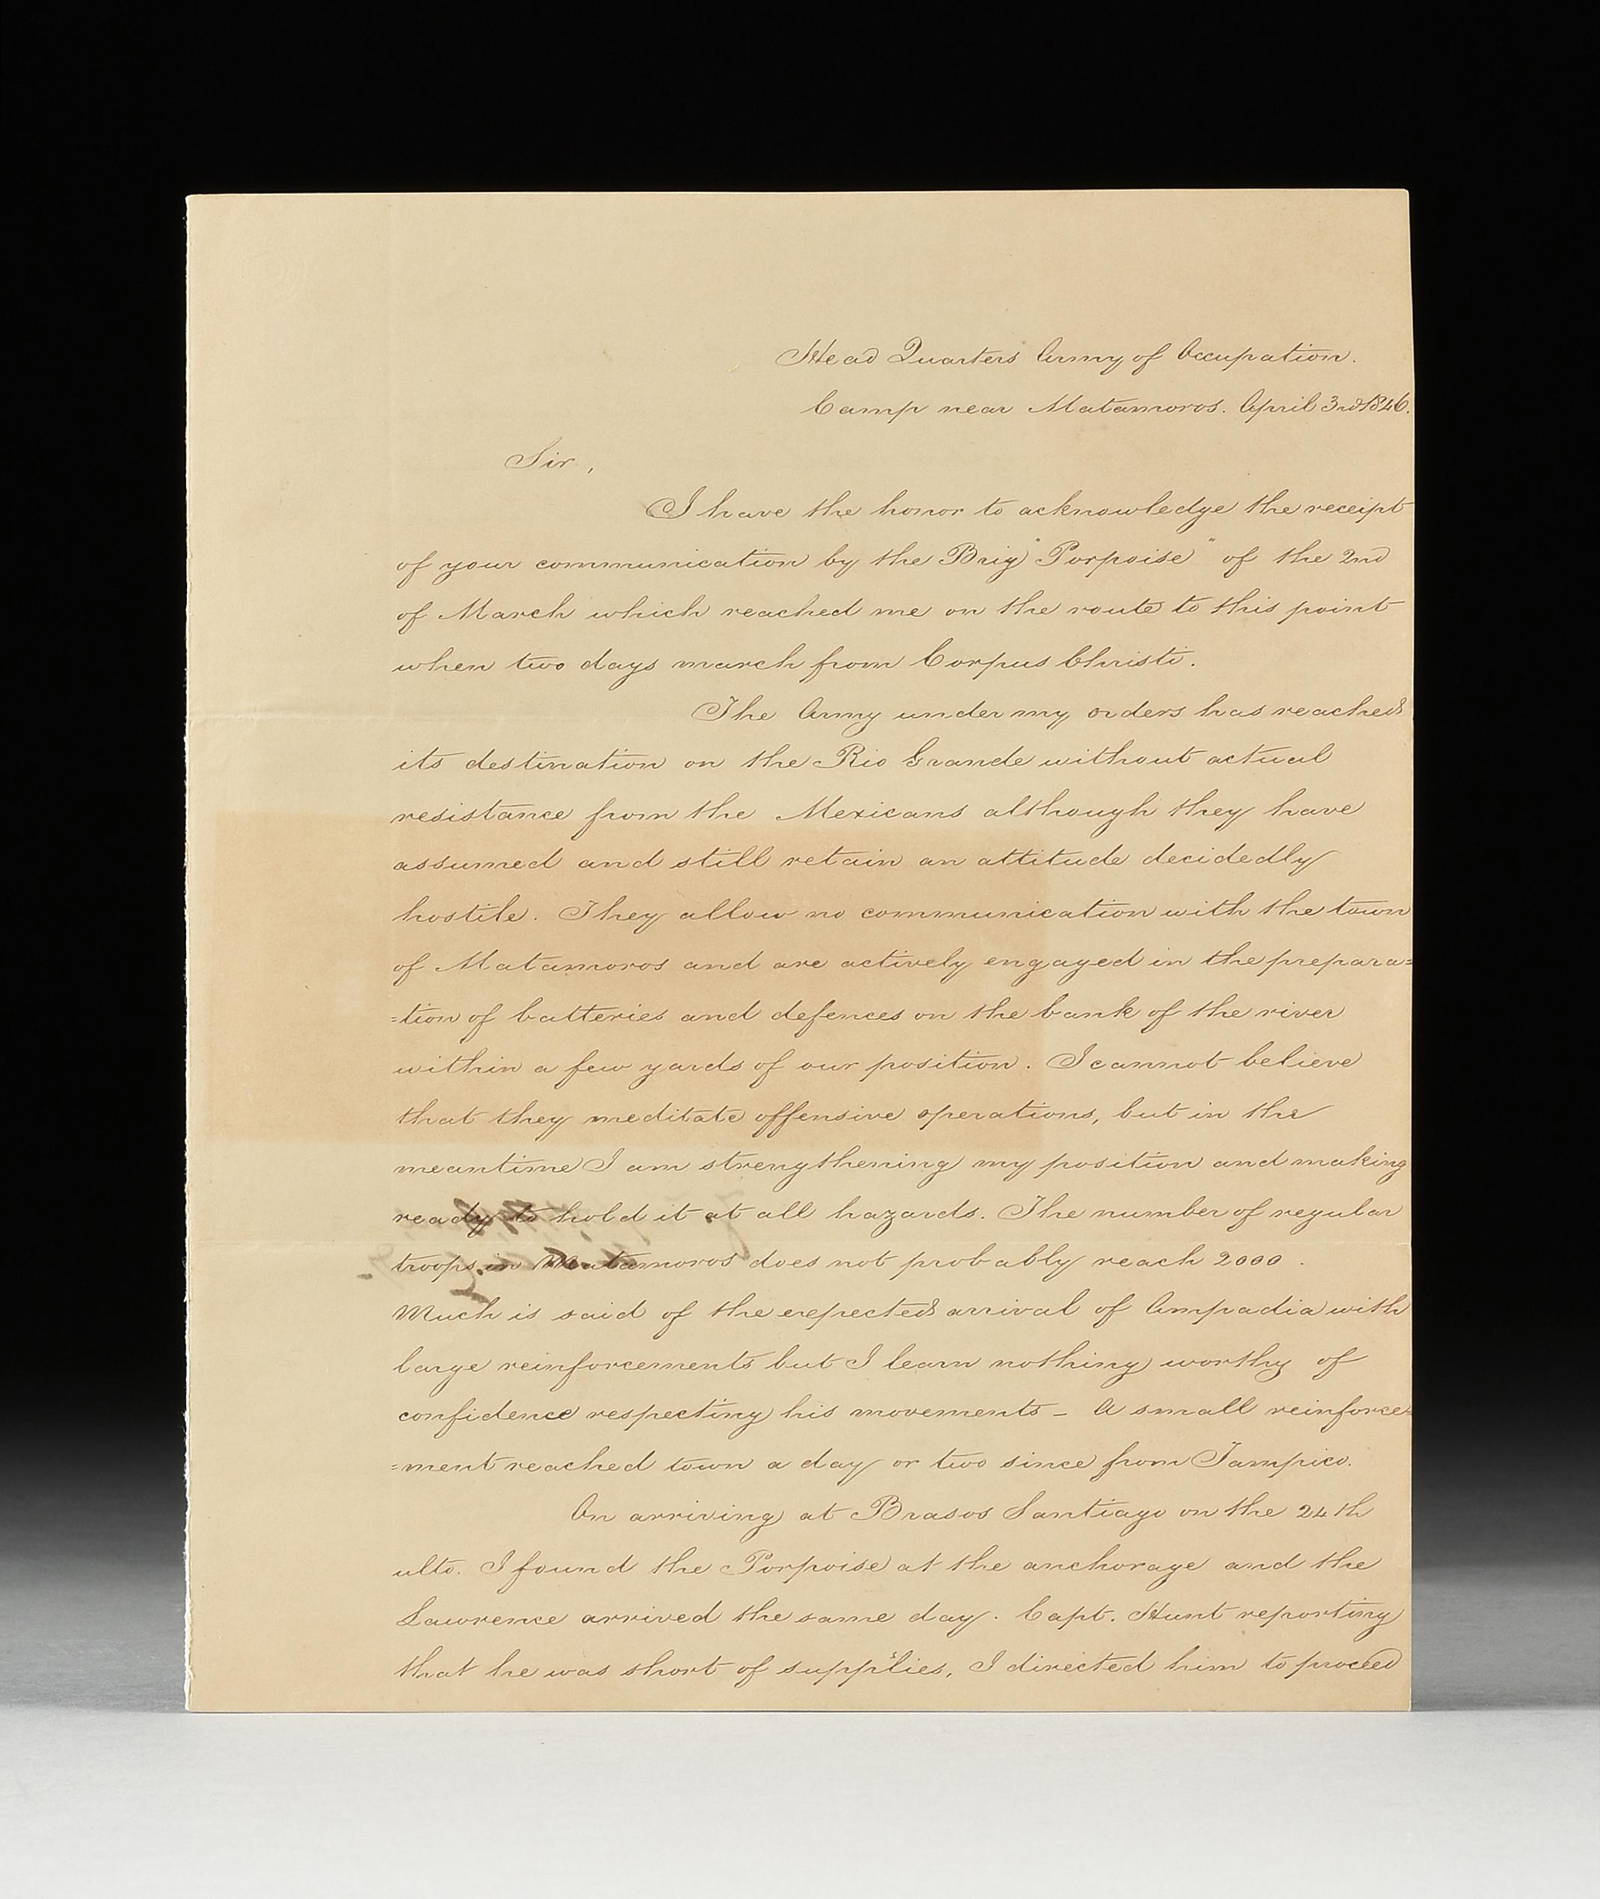 Head Quarters Army of Occupation.
Camp near Matamoros. April 3rd 1846.
Sir,
I have the honor to acknowledge the receipt
of your communication by the Brig "Porpoise" of the 2nd
of March which reached me on the route to this point
when two days march from Corpus Christi.
The Army under my orders has reached
its destination on the Rio Grande without actual
resistance from the Mexicans although they have
assumed and still retain an attitude decidedly
hostile. They allow no communication with the town
of Matamoros and are actively engaged in the prepara=
=tion of batteries and defences on the bank of the river
within a few yards of our position. I cannot believe
that they meditate offensive operations, but in the
meantime I am strengthening my position and making
ready to hold it at all hazards. The number of regular
troops in Matamoros does not probably reach 2000.
Much is said of the expected arrival of Ampadia with
large reinforcements but I learn nothing worthy of
confidence respecting his movements - A small reinforce=
=ment reached town a day or two since from Tampico.
On arriving at Brasos Santiago on the 24th
ulto. I found the Porpoise at the anchorage and the
Lawrence arrived the same day. Capt. Hunt reporting
that he was short of supplies, I directed him to proceed